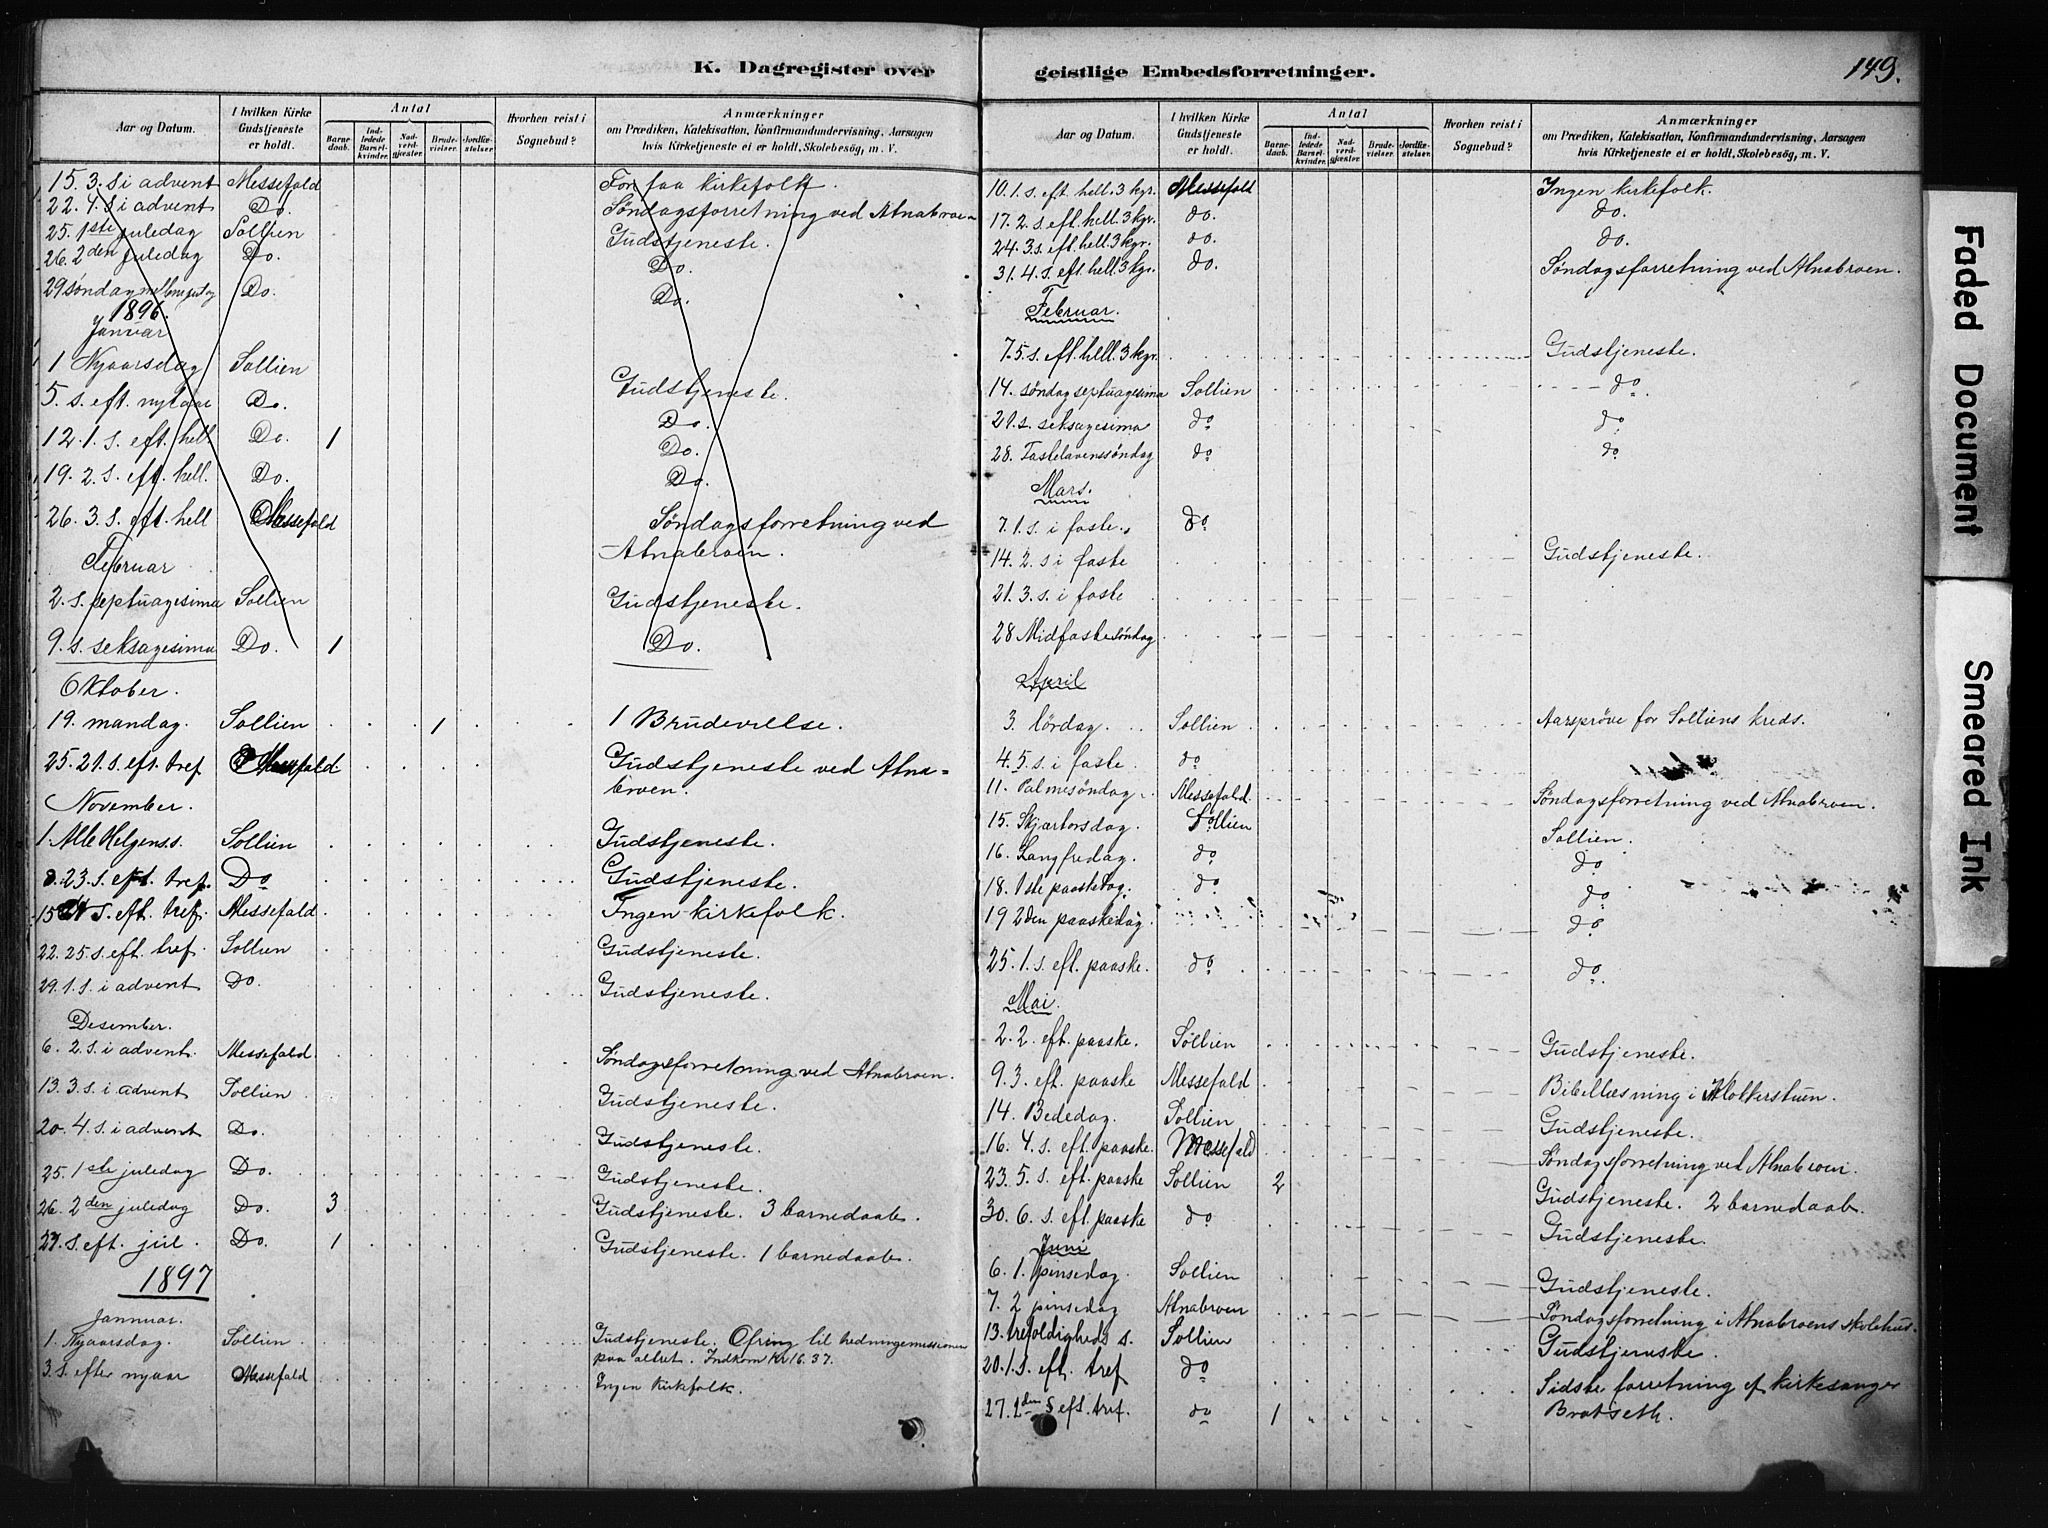 K. Dagregister over geistlige Embedsforretninger.
149.
Aar og Datum. | I hvilken Kirke Gudstjeneste er holdt. | Antal | Barne-daab. | Ind-ledede Barsel-kvinder. | Nad-verd-gjæster. | Brude-vielser. | Jordfæ-stelser. | Hvorhen reist i Sognebud? | Anmærkninger om Prædiken, Katekisation, Konfirmandundervisning, Aarsagen hvis Kirketjeneste ei er holdt, Skolebesøg, m. V.
15. 3. s i advent Messefald For faa kirkefolk.
22. 4. s i advent Do. Søndagsforretning ved Atnabroen
25. 1ste juledag Sollien Gudstjeneste.
26. 2den juledag Do. Do.
29 søndag Do. Do.
1896.
Januar
1 Nyaarsdag Sollien Gudstjeneste.
5. s. eft. nytaar Do. Do.
12. 1. s. eft. hell Do. 1 Do.
19. 2. s. eft. hell. Do. Do.
26. 3. s. eft. hell Messefald Søndagsforretning ved
Atnabroen.
Februar
2. s. septuagesima Sollien Gudstjeneste.
9. s. seksagesima Do. 1 Do.
Oktober.
19. mandag. Sollien 1 1 Brudevielse.
25. 21. s. eft. tref Messefald Gudstjeneste ved Atna-
broen.
November.
1. Alle Helgens s. Sollien Gudstjeneste.
8. 23. s. eft. tref. Do Gudstjeneste.
15 24 s. eft. tref. Messefald Ingen kirkefolk.
22. 25. s. eft. tref. Sollien Gudstjeneste.
29. 1. s. i advent Do. Gudstjeneste.
Desember.
6. 2. s. i advent. Messefald. Søndagsforretning ved Atnabroen.
13. 3. s. i advent Sollien Gudstjeneste.
20. 4. s. i advent Do. Gudstjeneste.
25. 1ste juledag Do. Gudstjeneste.
26. 2den juledag Do. 3 Gudstjeneste. 3 barnedaab.
27. s. eft. jul. Do. 1 Gudstjeneste. 1 barnedaab.
1897
Jannuar.
1. Nyaarsdag. Sollien Gudstjeneste. Ofring til hedningemissionen
paa altret. Indkom Kr 16.37.
3. s. efter nyaar Messefald Ingen Kirkefolk.
Aar og Datum. | I hvilken Kirke Gudstjeneste er holdt. | Antal | Barne-daab. | Ind-ledede Barsel-kvinder. | Nad-verd-gjæster. | Brude-vielser. | Jordfæ-stelser. | Hvorhen reist i Sognebud? | Anmærkninger om Prædiken, Katekisation, Konfirmandundervisning, Aarsagen hvis Kirketjeneste ei er holdt, Skolebesøg, m. V.
10. 1. s. eft. hell. 3 kgr. Messefald Ingen kirkefolk.
17. 2. s. eft. hell. 3 kgr. do. do.
24. 3. s. eft. hell. 3 kgr. do. do.
31. 4. s. eft. hell. 3 kgr. do. Søndagsforretning ved Atnabroen.
Februar.
7. 5. s. eft. hell. 3 kgr. Gudstjeneste.
14. søndag septuagesima Sollien do.
21. s. seksagesima do do
28. Fastelavenssøndag do do
Mars.
7. 1. s. i faste. do
14. 2. s i faste Gudstjeneste.
21. 3. s. i faste
28 Midfastesøndag
April
3. lördag. Sollien Aarsprøve for Solliens kreds.
4. 5. s. i faste. do
11. Palmesöndag. Messefald. Søndagsforretning ved Atnabroen.
15. Skjærtorsdag. Sollien Sollien.
16. Langfredag. do do
18. 1ste paaskedag. do do
19 2den paaskedag. do
25. 1. s. eft. paaske. do do.
Mai.
2. 2. eft. paaske. Sollien Gudstjeneste.
9. 3. eft. paaske Messefald Bibellæsning i Klokkerstuen.
14. Bededag. Sollien Gudstjeneste.
16. 4. s. eft. paaske. Messefald Søndagsforretning ved Atnabroen.
23. 5. s. eft. paaske Sollien 2 Gudstjeneste. 2 barnedaab.
30. 6. s. eft. paaske do Gudstjeneste.
Juni
6. 1. pinsedag. Sollien Gudstjeneste.
7. 2 pinsedag Atnabroen Søndagsforretning i Atnabroens skolehus.
13. trefoldigheds s. Sollien Gudstjeneste.
20. 1. s. eft. tref do Sidste forretning af kirkesanger
27. 2den s eft. tref. do 1 Bratseth.
Faded Document
Smeared Ink